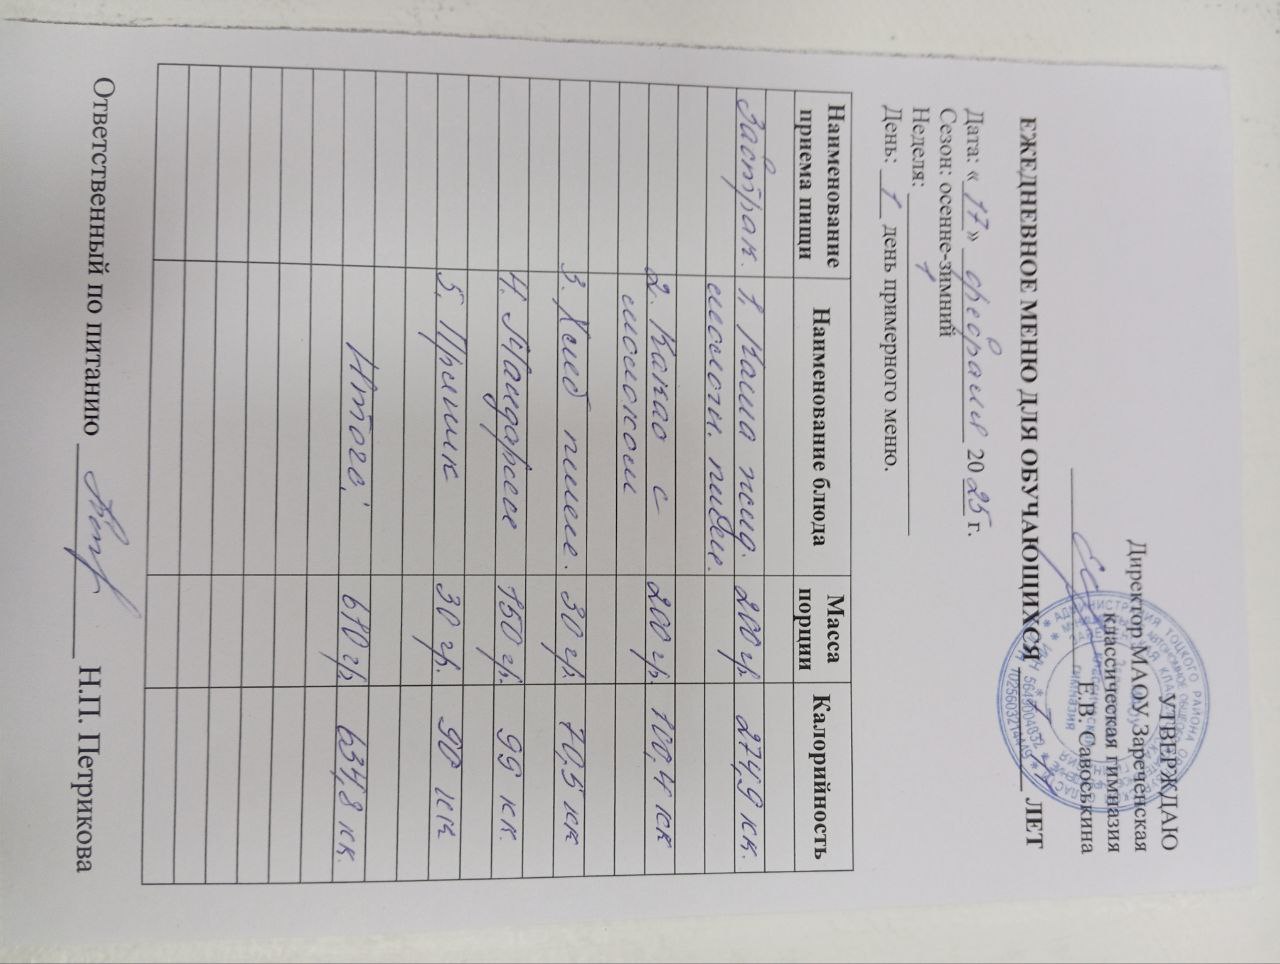 УТВЕРЖДАЮ
Директор МАОУ Зареченская
классическая гимназия
Е.В. Савоськина
ЕЖЕДНЕВНОЕ МЕНЮ ДЛЯ ОБУЧАЮЩИХСЯ ЛЕТ
Дата: «17» февраля 2025 г.
Сезон: осенне-зимний
Неделя: 1
День: 1 день примерного меню.
Наименование приема пищи Наименование блюда Масса порции Калорийность
Завтрак. 1. Каша пшд. 200 гр. 274,9 кк.
молочн.
2. Какао с 200 гр. 100,4 кк
молоком
3. Хлеб пшен. 30 гр. 70,5 кк
4. Мандарин 150 гр. 99 кк.
5. Пряник 30 гр. 90 кк
Итого: 610 гр. 634,8 кк.
Ответственный по питанию Н.П. Петрикова